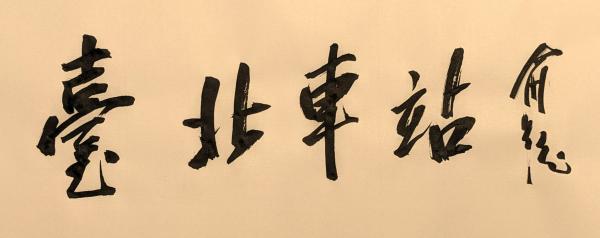 臺北車站